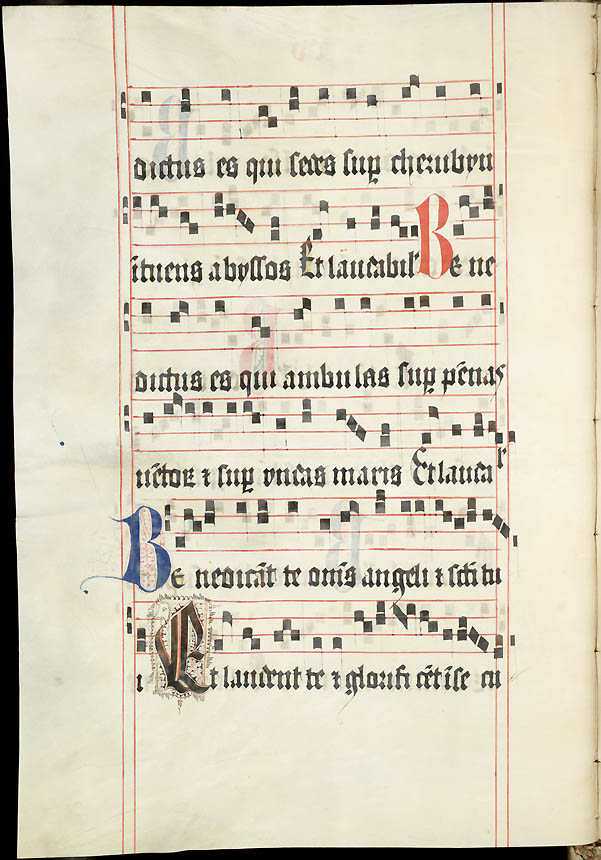 dictus es qui sedes sup cherubyn
ītuens abyssos Et laudabil' Be ne
dictus es qui ambulas sup pēnas
uētoꝝ ⁊ sup undas maris Et lauda
Be nedicāt te om̄s angeli ⁊ sc̄ti tu
i Et laudent te ⁊ glorifi cēt ī se cu